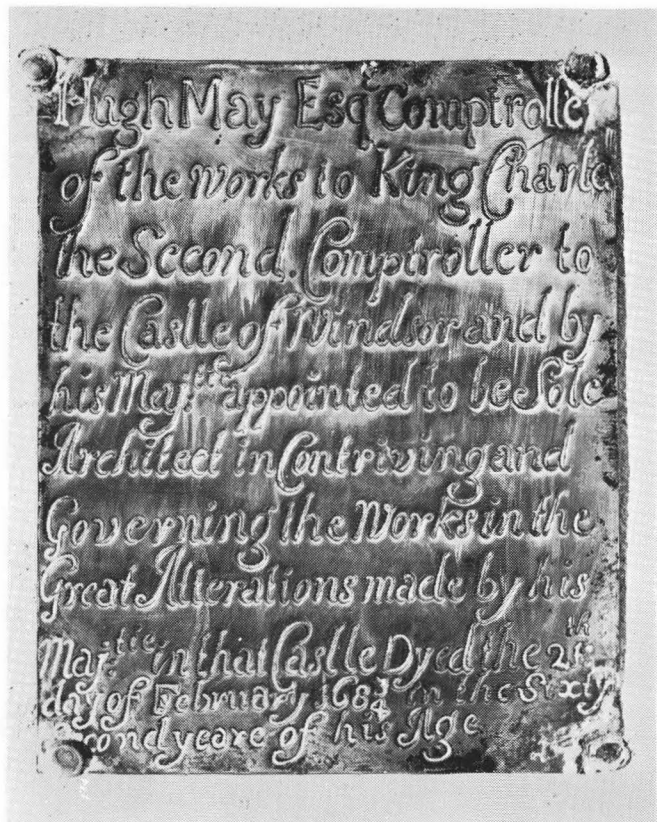 Hugh May Esqr Comptrolle
of the works to King Charle
the Second. Comptroller to
the Castle of Windsor and by
his Maj.tie appointed to be Sole
Architect in Contriving and
Governing the Works in the
Great Alterations made by his
Maj.tie in that Castle Dyed the
day of February 168¾ in the Sixty
econd yeare of his Age